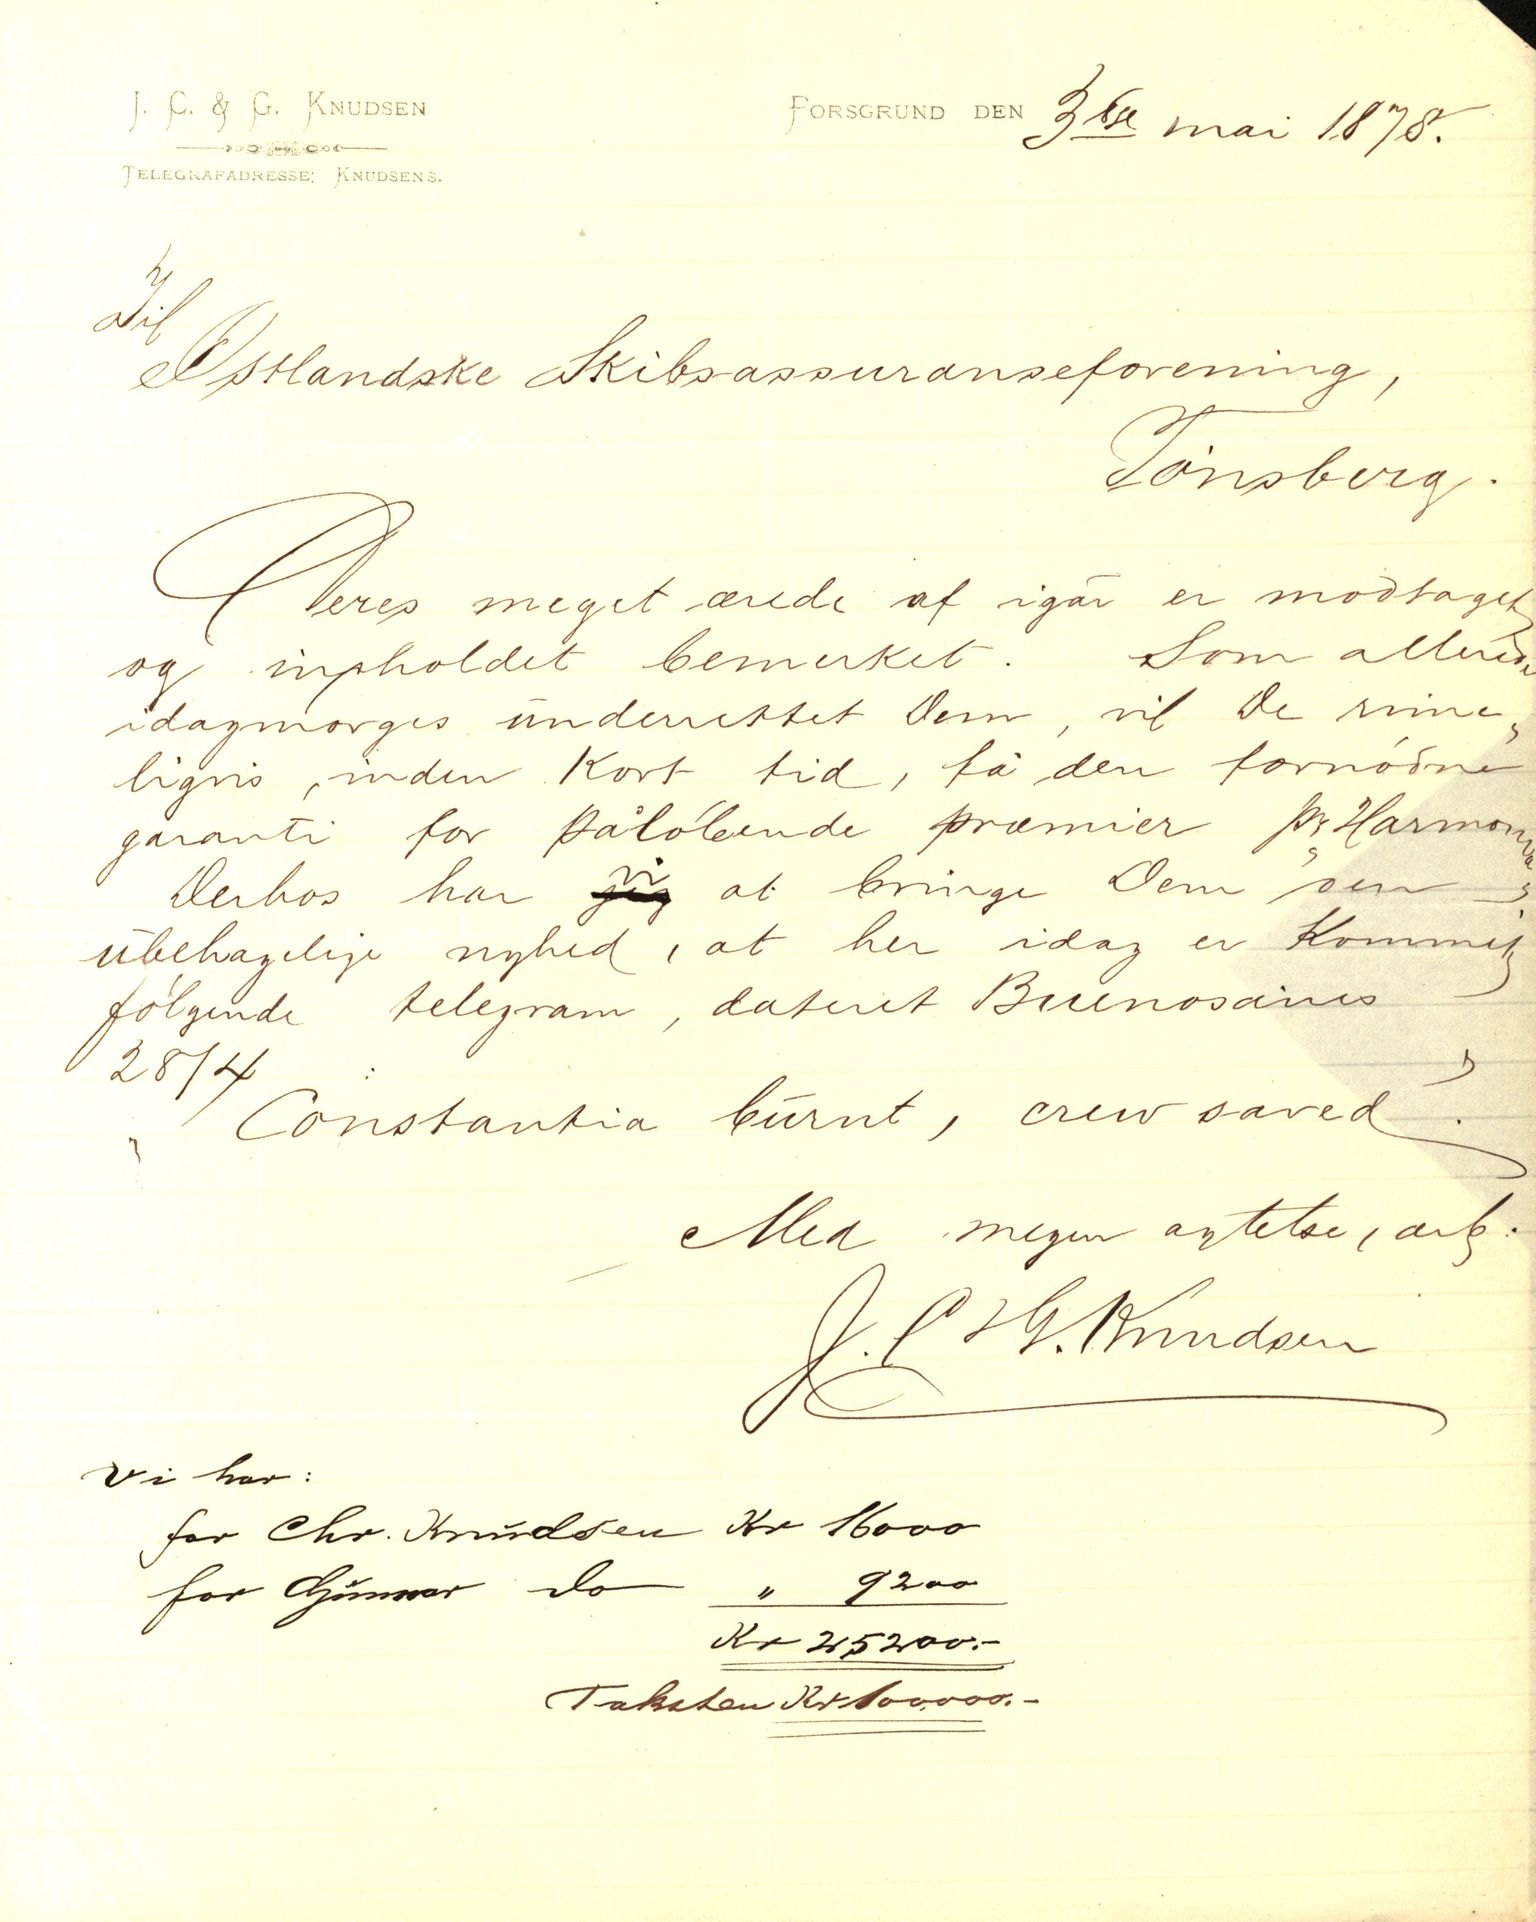 J. C. & G. Knudsen
Forsgrund den 3dje mai 1878.
Telegrafadresse: Knudsens.
Til
Østlandske Skibsassuranseforening,
Tönsberg.
Deres meget ærede af igår er modtaget,
og inholdet bemerket. Som allerede
idagmorges underrettet Dem, vil De rime-
ligvis, inden kort tid, få den fornödne
garanti for pålöbende præmier pr "Harmonia"
Derhos har vi at bringe Dem den
ubehagelige nyhed, at her idag er kommet
fölgende telegram, dateret Buenosaires
28/4 :
"Constantia burnt, crew saved".
Med megen agtelse, ærb.
J. C & G. Knudsen
Vi har:
for Chr. Knudsen Kr 16000
for Gunnar do " 9200
Kr 25200.-
Taksten Kr 100,000.-